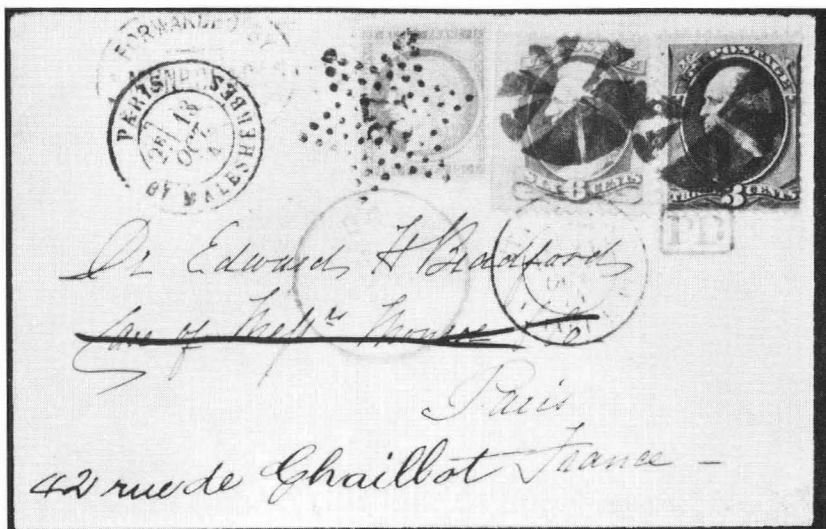 FORWARDED BY
PARIS
2E 13
OCT
4
BT MALESHERBES
U.S. POSTAGE
SIX 6 CENTS
THREE 3 CENTS
PD
Dr Edward H Bradford
Care of Messrs Monroe & Co
Paris
42 rue de Chaillot France –